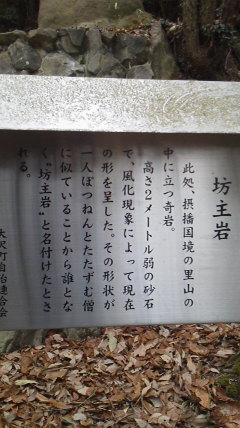 坊主岩
此処、摂播国境の里山の
中に立つ奇岩。
高さ2メートル弱の砂石
で、風化現象によって現在
の形を呈した。その形状が
一人ぽつねんとたたずむ僧
に似ていることから誰とな
く"坊主岩"と名付けたとさ
れる。
大沢町自治連合会